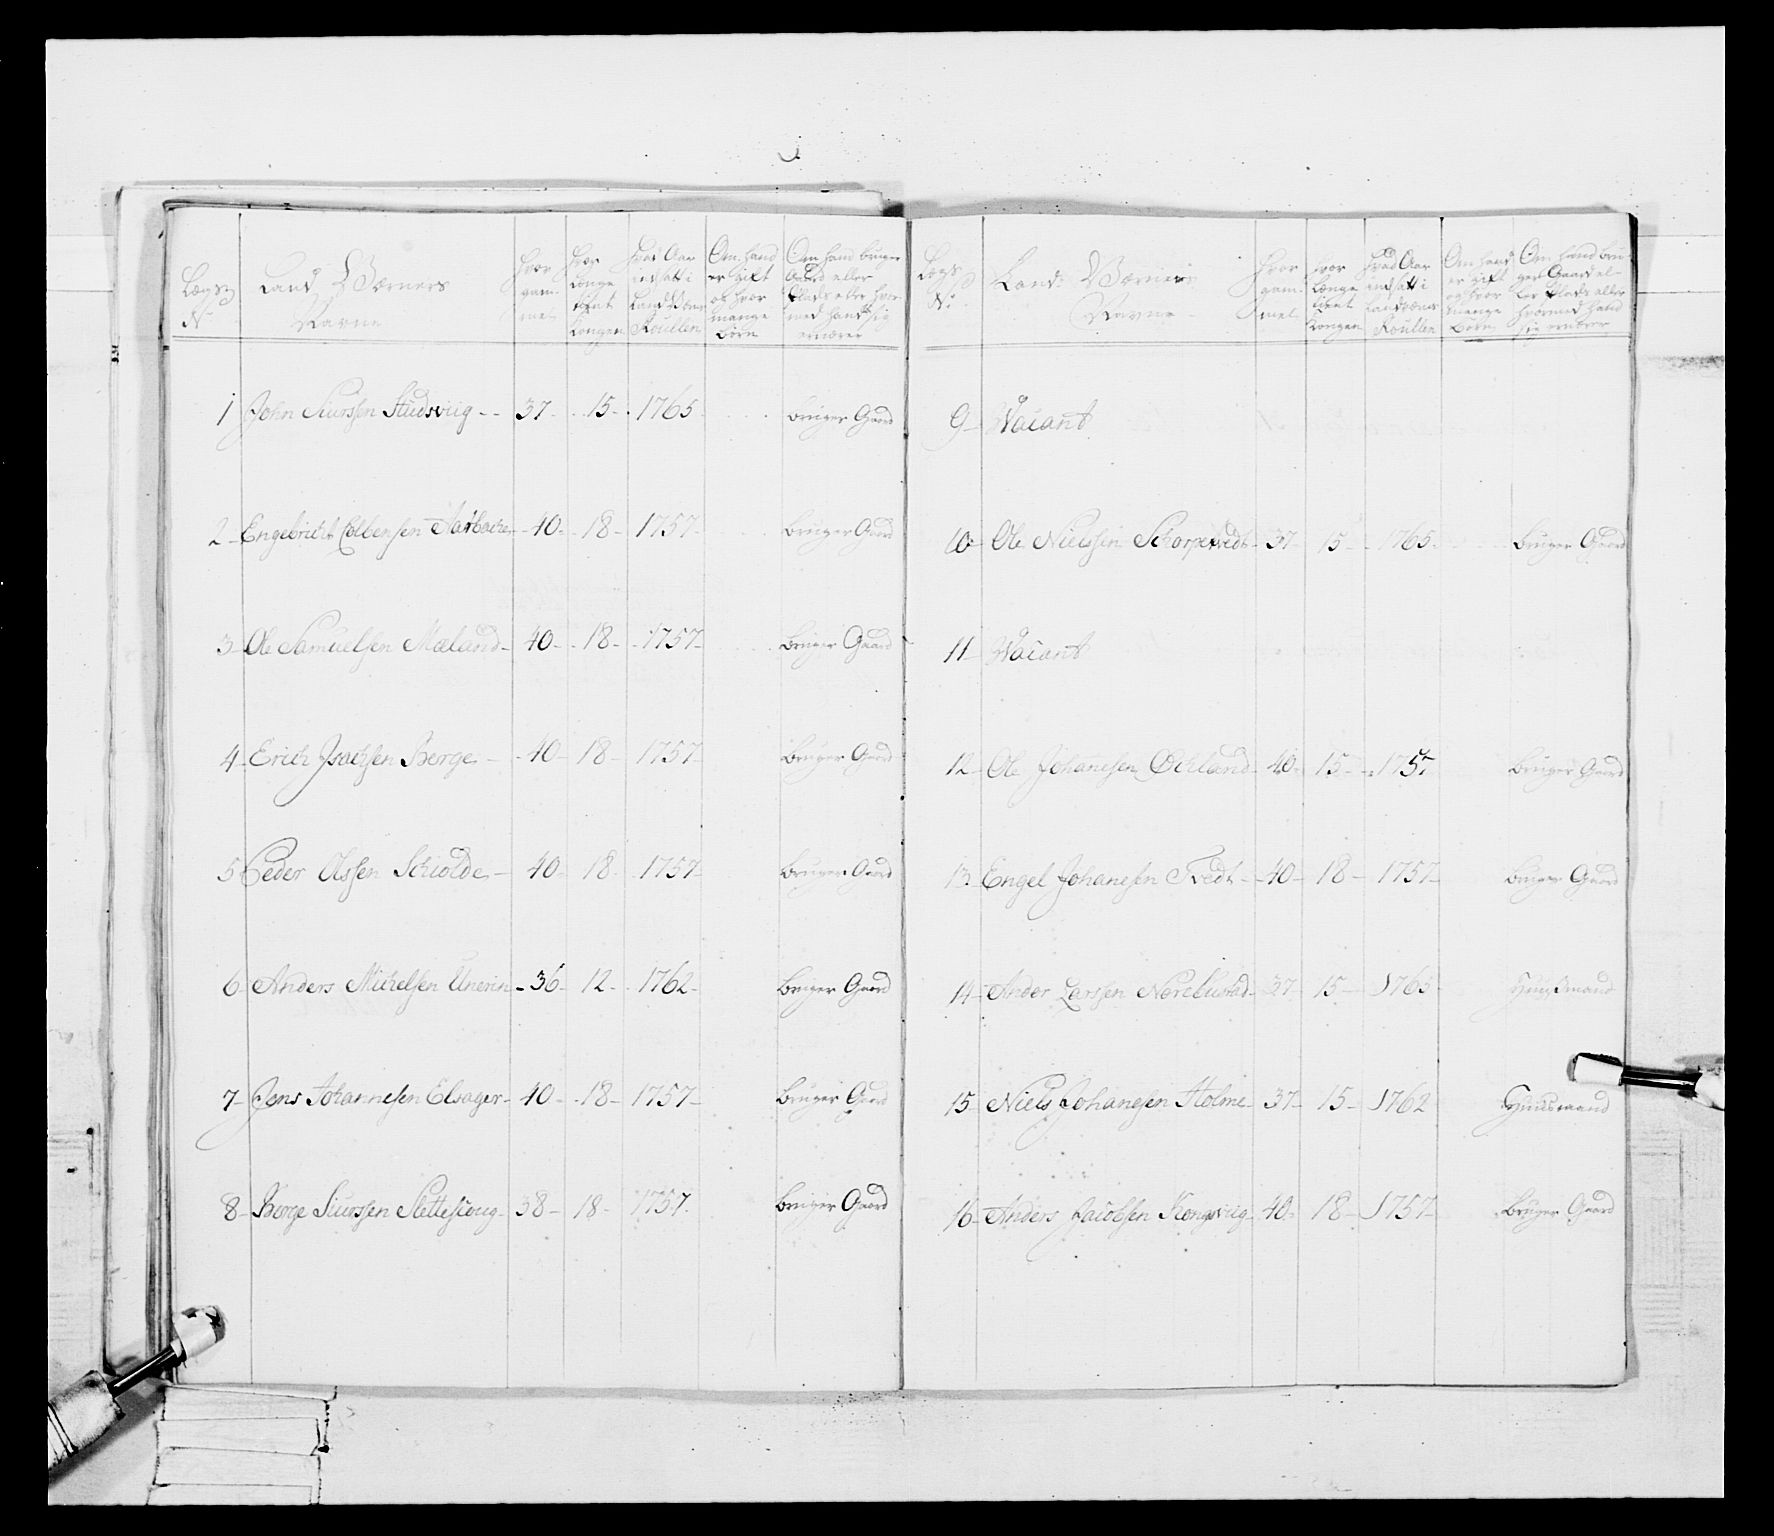 Lægs No
Land Værners Navne
Hvor gam- mel
Hvor Længe tient Kongen
Hvad Aar indsatt i Land Værns Roullen
Om hand er Gift og hvor mange børn
Om hand bruger Gaard eller Plads eller hvor- med hand sig ernærer
1 John Siursen Studsviig - - 37 - 15 - 1765 bruger Gaard
2 Engebricht Colbensen Aarbache - 40 - 18 - 1757 - bruger Gaard
3 Ole Samuelsen Mæland - 40 - 18 - 1757 - bruger Gaard
4 Erich Isachsen Berge - 40 - 18 - 1757 bruger Gaard
5 Peder Olssen Schiolde - 40 - 18 - 1757 bruger Gaard
6 Anders Michelsen - 36 - 12 - 1762 - bruger Gaard
7 Jens Johannesen Elsager - 40 - 18 - 1757 - bruger Gaard
8 Børge Siurssen - 38 - 18 - 1757 bruger Gaard
Lægs No
Land Værners Navne
Hvor gam- mel
hvor Længe tient Kongen
Hvad Aar indsatt i Landværns Roullen
Om hand er Gift og hvor mange børn
Om hand bru- ger Gaard el- ler Plads eller hvormed hand sig ernærer
9 Wacant
10 Ole Nielssen Schorpetvedt - 37 - 15 - 1765 bruger Gaard
11 Wacant
12 Ole Johanesen Øchland - 40 - 15 - 1757 bruger Gaard
13 Engel Johanesen Tvedt - 40 - 18 - 1757 bruger Gaard
14 Ander Larssen - 37 - 15 - 1765 Huusmand
15 Niels Johanesen Holme - 37 - 15 - 1762 Huusmand
16 Anders Jacobsen Kongsviig - 40 - 18 - 1757 - bruger Gaard